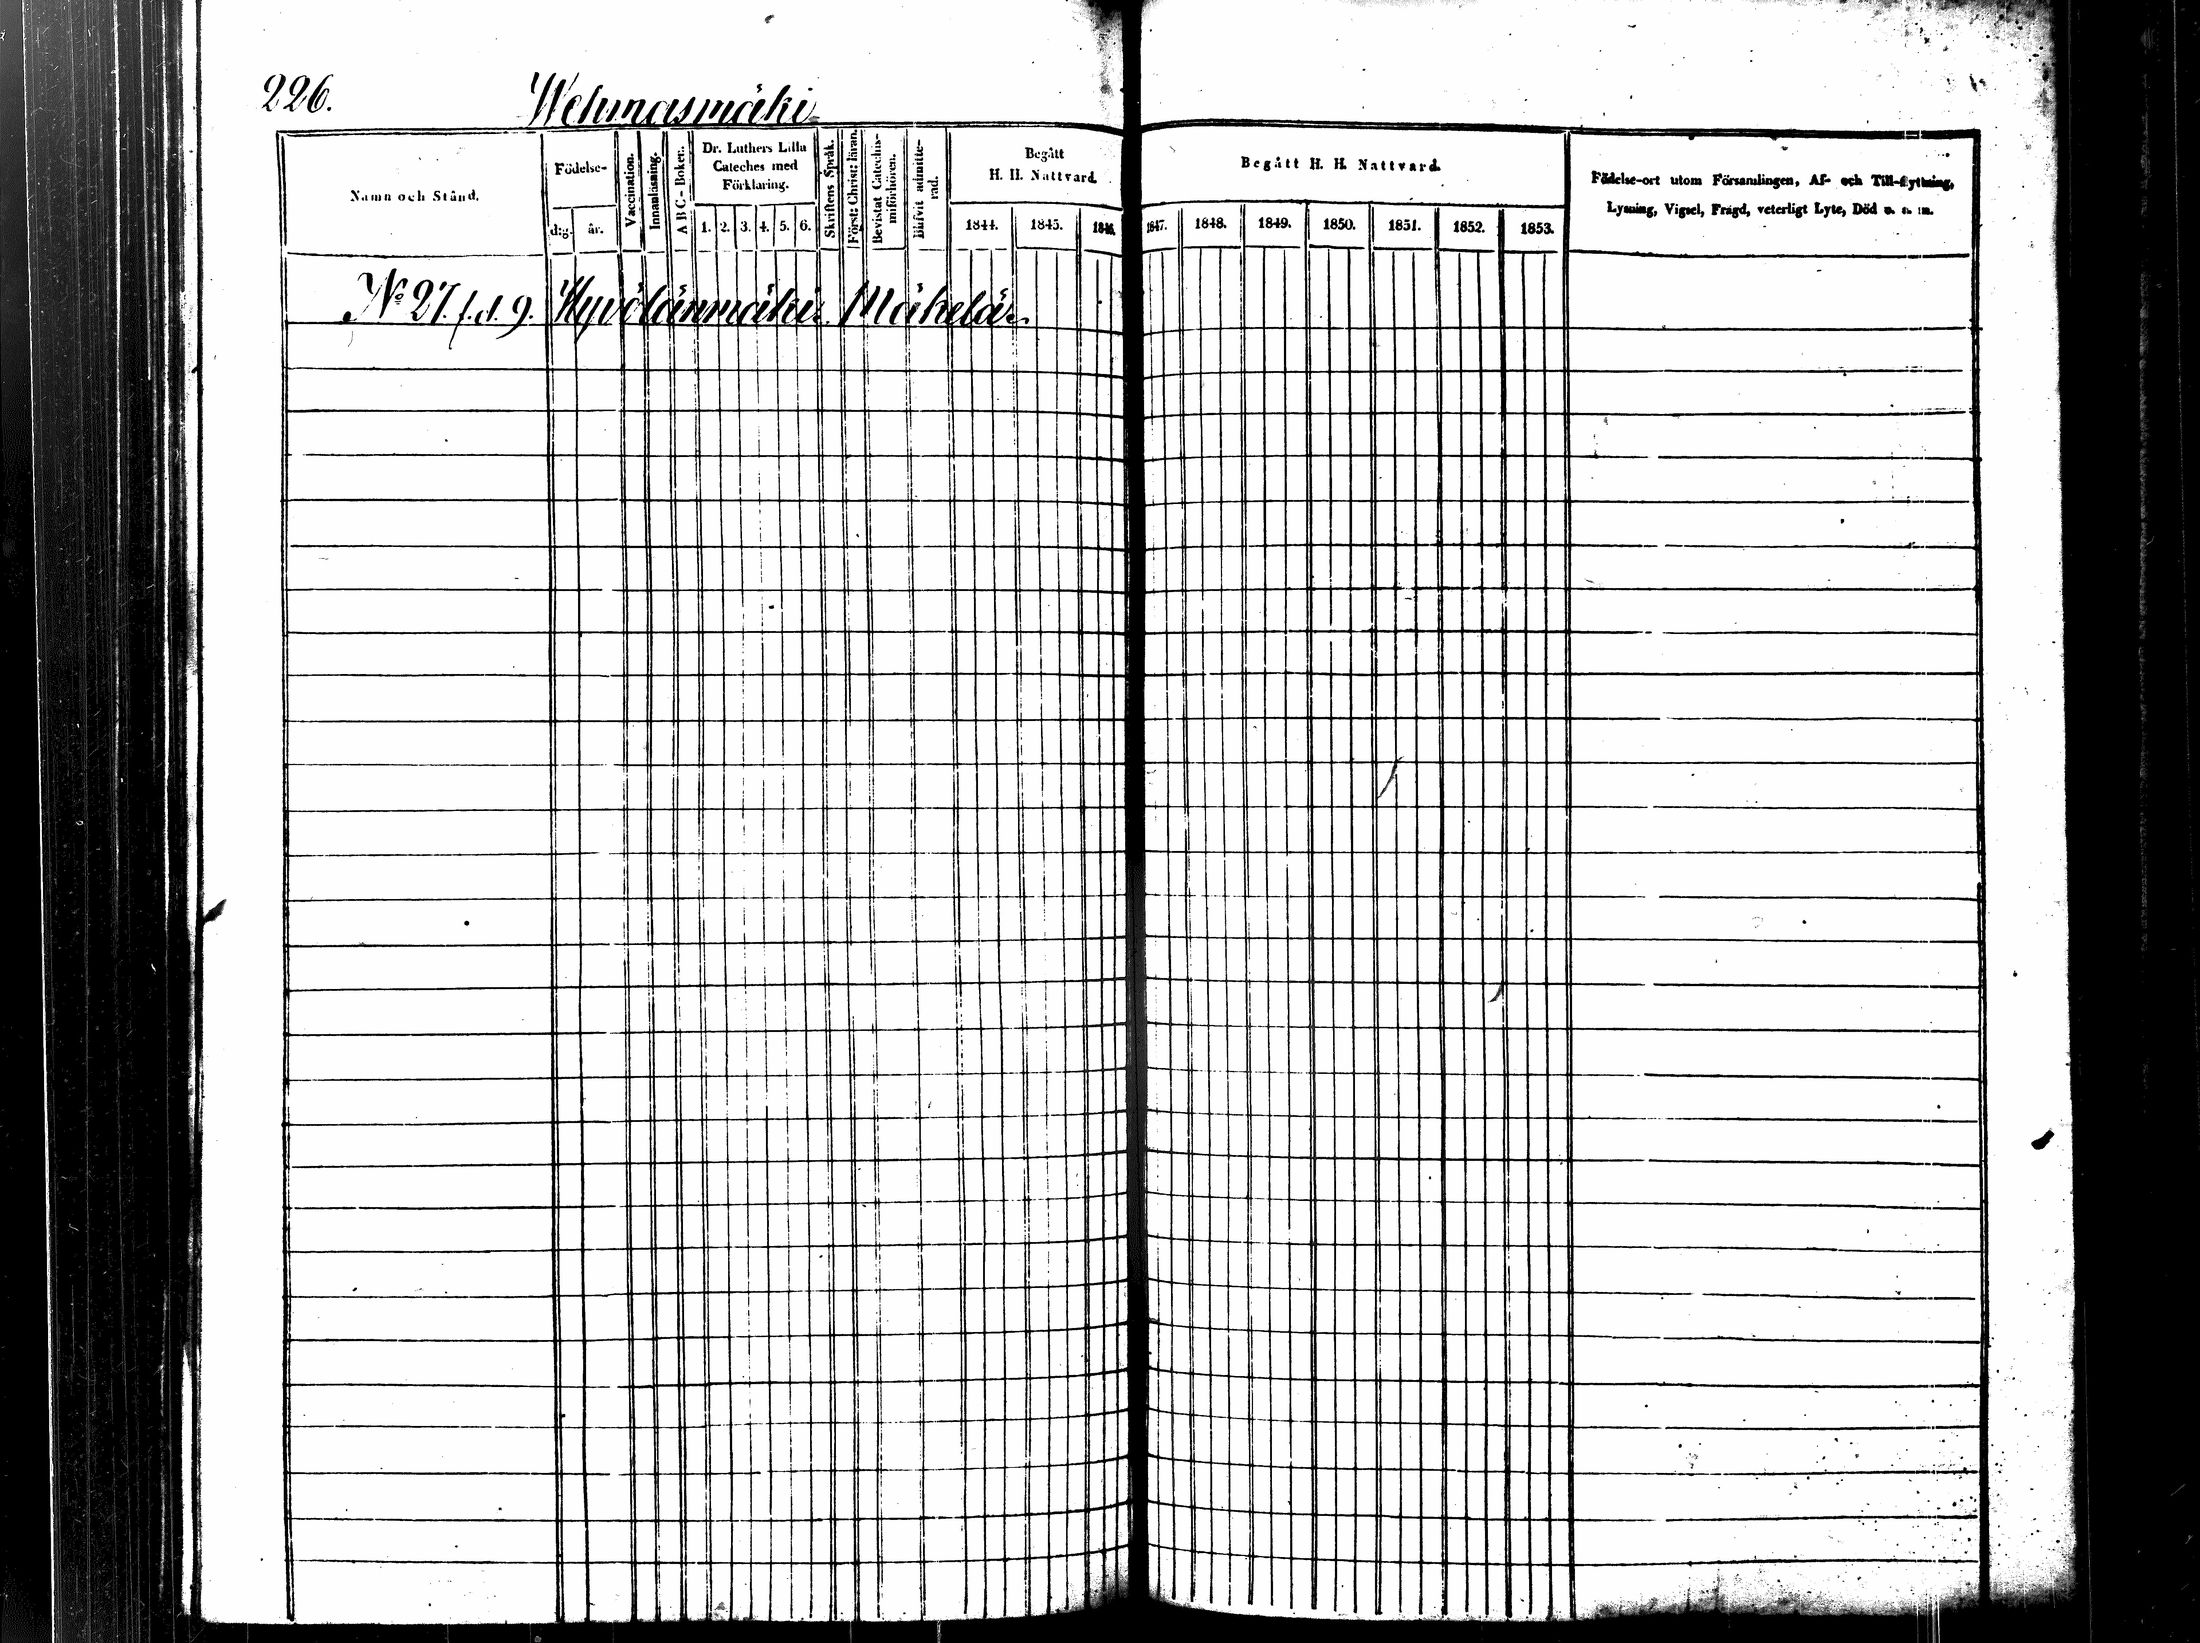 226. Wehmasmäki
Namn och Stånd.
Födelse-
d:g. år.
Vaccination.
Innanläsning.
A B C - Boken.
Dr. Luthers Lilla
Cateches med
Förklaring.
1. 2. 3. 4. 5. 6.
Skriftens Språk.
Först: Christ: läran.
Bevistat Catechis-
miförhören.
Blifvit admitte-
rad.
Begått
H. H. Nattvard.
1844. 1845. 1846.
Begått H. H. Nattvard.
1847. 1848. 1849. 1850. 1851. 1852. 1853.
Födelse-ort utom Församlingen, Af- och Till-flyttning,
Lysning, Vigsel, Frägd, veterligt Lyte, Död o. s. m.
No 27. f.d. 9. Hyvölänmäki. Mäkelä.